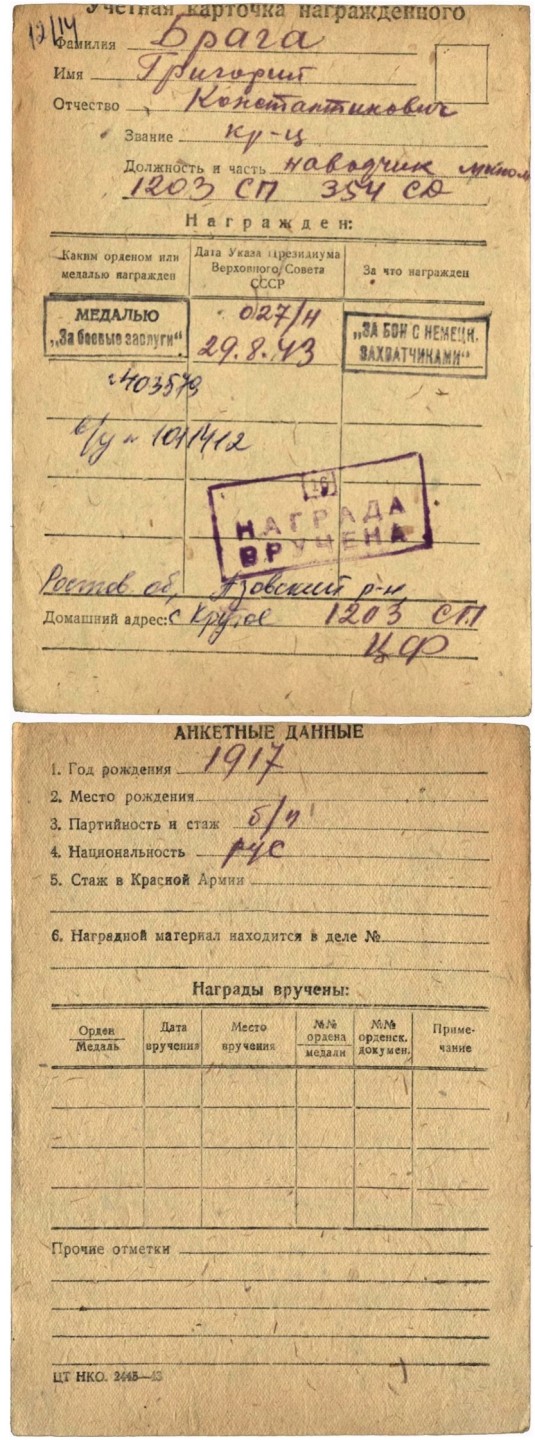 Учетная карточка награжденного
12/14
Фамилия Брага
Имя Григорий
Отчество Константинович
Звание кр-ц
Должность и часть наводчик мином
1203 СП 354 СД
Награжден:
Каким орденом или медалью награжден
Дата Указа Президиума Верховного Совета СССР
За что награжден
МЕДАЛЬЮ
„За боевые заслуги“
027/н
29.8.43
„ЗА БОИ С НЕМЕЦК.
ЗАХВАТЧИКАМИ“
№403579
в/у № 1011412
16
НАГРАДА
ВРУЧЕНА
Ростов об, Азовский р-н
Домашний адрес: с Круглое 1203 СП
ЦФ
АНКЕТНЫЕ ДАННЫЕ
1. Год рождения 1917
2. Место рождения
3. Партийность и стаж б/п
4. Национальность рус
5. Стаж в Красной Армии
6. Наградной материал находится в деле №
Награды вручены:
Орден
Медаль
Дата вручения
Место вручения
№№ ордена
медали
№№ орденск. докумен.
Приме-
чание
Прочие отметки
ЦТ НКО. 2445—43